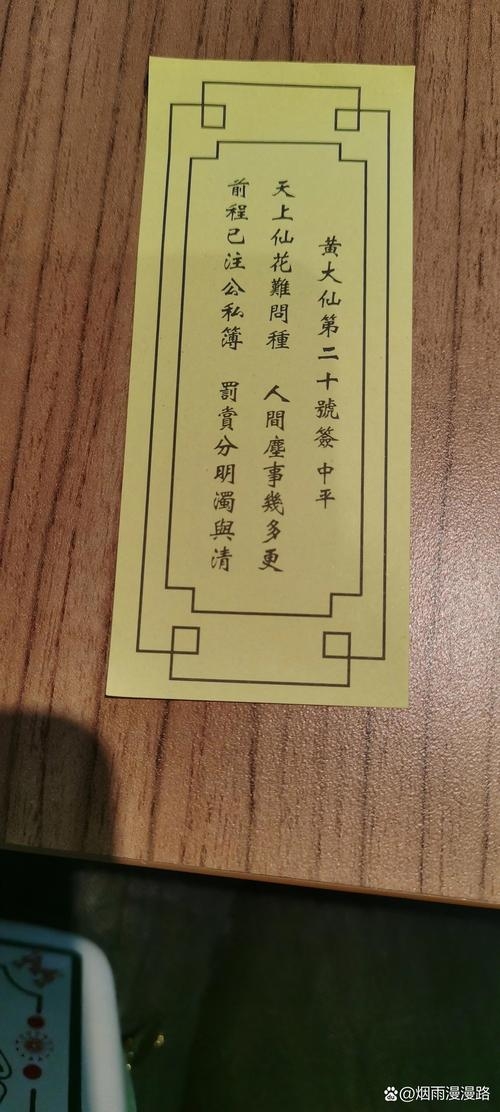 黃大仙第二十號簽 中平
天上仙花難問種 人間塵事幾多更
前程已注公私簿 罰賞分明濁與清
@烟雨漫漫路